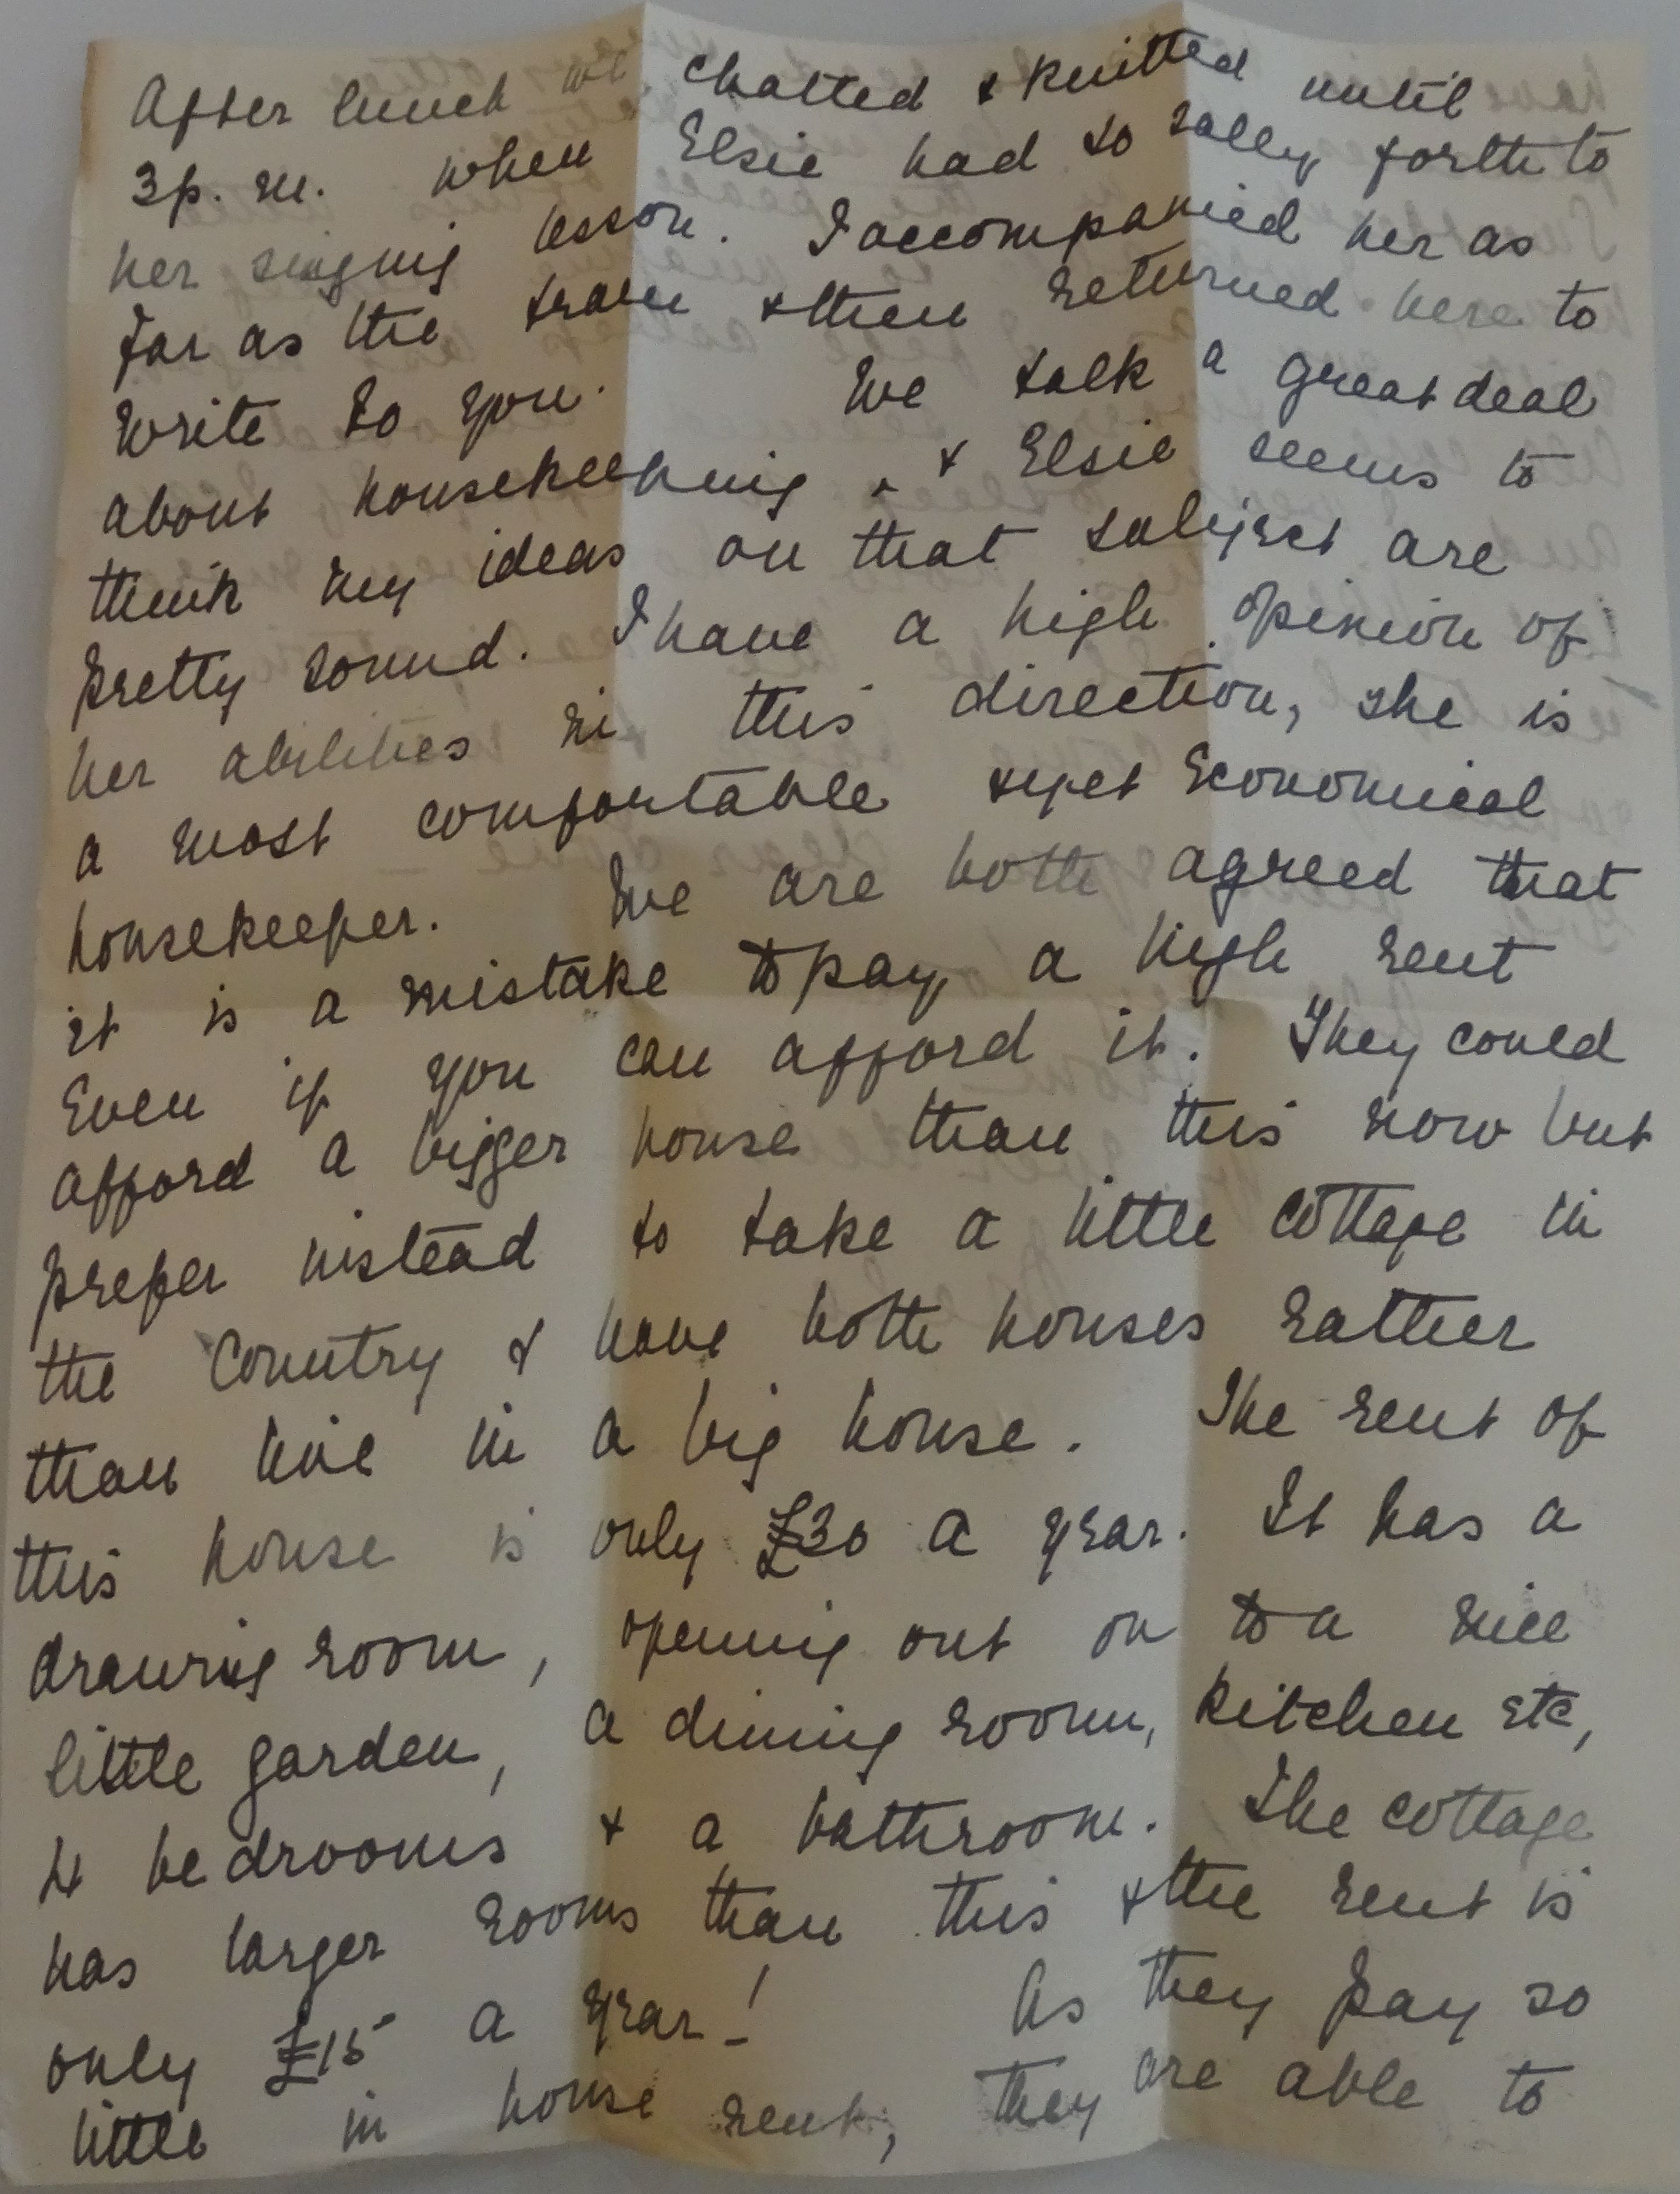 After lunch we chatted & knitted until
3p.m. when Elsie had to sally forth to
her singing lesson. I accompanied her as
far as the tram & then returned here to
write to you. We talk a great deal
about housekeeping, & Elsie seems to
think my ideas on that subject are
pretty sound. I have a high opinion of
her abilities in this direction, she is
a most comfortable & yet economical
housekeeper. We are both agreed that
it is a mistake to pay a high rent
even if you can afford it. They could
afford a bigger house than this now but
prefer instead to take a little cottage in
the country & have both houses rather
than live in a big house. The rent of
this house is only £30 a year. It has a
drawing room, opening out on to a nice
little garden, a dining room, kitchen etc,
4 bedrooms & a bathroom. The cottage
has larger rooms than this & the rent is
only £15 a year! As they pay so
little in house rent, they are able to